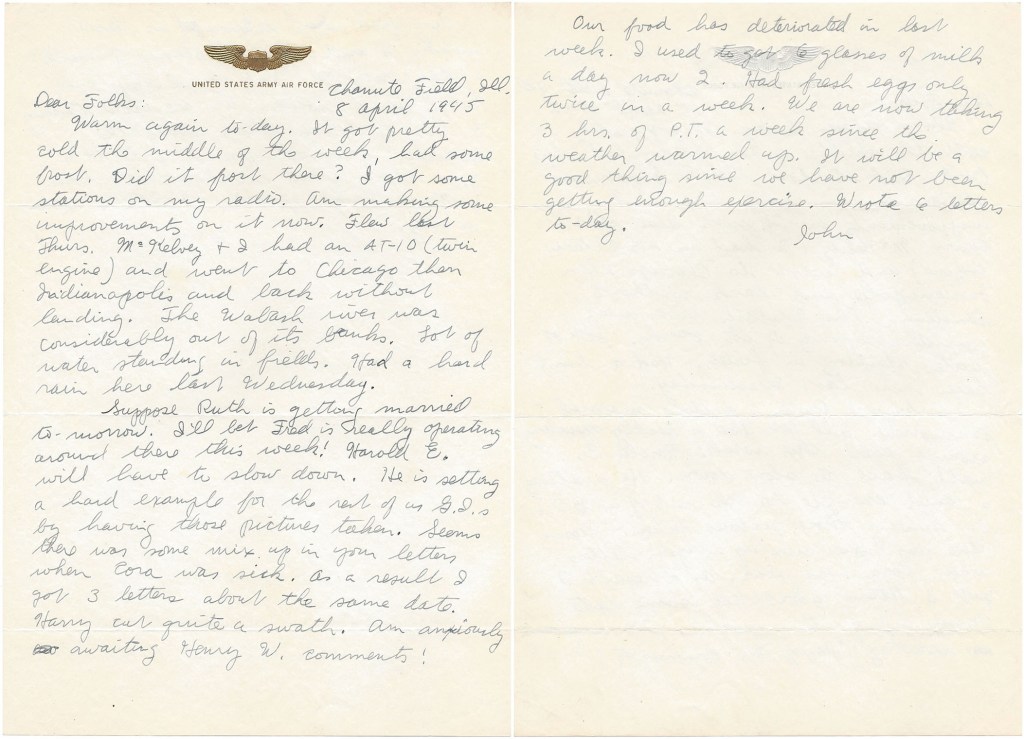 UNITED STATES ARMY AIR FORCE
Chanute Field, Ill.
8 April 1945
Dear Folks:
Warm again to-day. It got pretty
cold the middle of the week, had some
frost. Did it frost there? I got some
stations on my radio. Am making some
improvements on it now. Flew last
Thurs. McKelvey + I had an AT-10 (twin
engine) and went to Chicago then
Indianapolis and back without
landing. The Wabash river was
considerably out of its banks. Lot of
water standing in fields. Had a hard
rain here last Wednesday.
Suppose Ruth is getting married
to-morrow. I'll bet Fred is really operating
around there this week! Harold E.
will have to slow down. He is setting
a hard example for the rest of us G.I.s
by having those pictures taken. Seems
there was some mix up in your letters
when Cora was sick. As a result I
got 3 letters about the same date.
Harry cut quite a swath. Am anxiously
awaiting Henry W. comments!
Our food has deteriorated in last
week. I used to get 6 glasses of milk
a day now 2. Had fresh eggs only
twice in a week. We are now taking
3 hrs. of P.T. a week since the
weather warmed up. It will be a
good thing since we have not been
getting enough exercise. Wrote 6 letters
to-day.
John